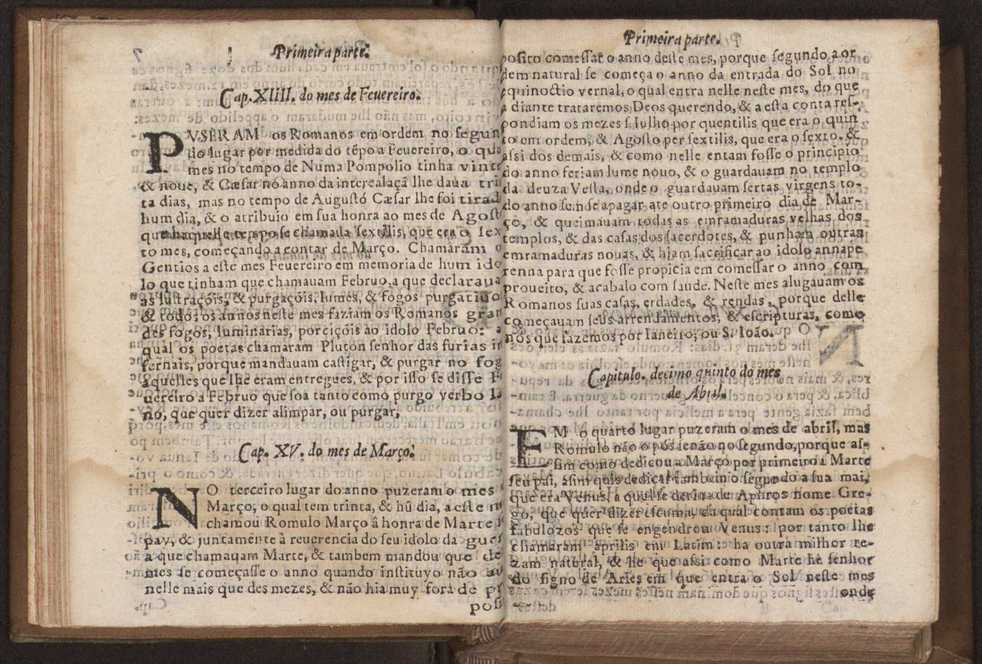 Primeira parte.
Cap. XIIII. do mes de Feuereiro.
PVSERAM os Romanos em ordem no segun
do lugar por medida do tẽpo a Feuereiro, o qual
mes no tempo de Numa Pompolio tinha vinte
& noue, & Cæsar nó anno da intercalaçã lhe daua trin
ta dias, mas no tempo de Augustó Cæsar lhe foi tirad
hum dia, & o atribuio em sua honra ao mes de Agost
que naquelle tempo se chamada sextilis, que era o sex
to mes, começando a contar de Março. Chamaram o
Gentios a este mes Feuereiro em memoria de hum ido
lo que tinham que chamauam Februo, a que declaraua
as lustraçóis, & purgaçóis, lumes, & fogos purgatiuo
& todos os annos neste mes faziam os Romanos gran
des fogos, luminarias, porciçóis ao idolo Februo: a
qual os poetas chamaram Pluton senhor das furias in
fernais, porque mandauam castigar, & purgar no fog
aquelles que lhe eram entregues, & por isso se disse F
uereiro a Februo que soa tanto como purgo verbo La
no, que quer dizer alimpar, ou purgar,
Cap. XV. do mes de Março.
NO terceiro lugar do anno puzeram o mes
Março, o qual tem trinta, & hũ dia, a este m
chamou Romulo Março á honra de Marte
pay, & juntamente à reuerencia do seu idolo da guer
a que chamauam Marte, & tambem mandou que de
mes se começasse o anno quando instituyo não au
nelle mais que des mezes, & não hia muy fora de p
poss
Primeira parte.
posito comessar o anno deste mes, porque segundo a or
dem natural se começa o anno da entrada do Sol no
equinoctio vernal, o qual entra nelle neste mes, do que
a diante trataremos Deos querendo, & a esta conta res-
pondiam os mezes s Iulho por quentilis que era o quin
to em ordem, & Agosto per sextilis, que era o sexto, &
assi dos demais, & como nelle entam fosse o principio
do anno feriam lume nouo, & o guardauam no templo
da deuza Vesta, onde o guardauam sertas virgens to-
do anno sem se apagar até outro primeiro dia de Mar-
ço, & queimauam todas as emramaduras velhas dos
templos, & das casas dos sacerdotes, & punham outras
emramaduras nouas, & hiam sacrificar ao idolo annape
renna para que fosse propicia em comessar o anno com
proueito, & acabalo com saude. Neste mes alugauam os
Romanos suas casas, erdades, & rendas, porque delle
começauam seus arrendamentos, & escripturas, como
nós que fazemos por Ianeiro, ou S. Ioão.
Capitulo. decimo quinto do mes
de Abril.
EM o quarto lugar puzeram o mes de abril, mas
Romulo não o pós senão no segundo, porque as-
sim como dedicou a Março por primeiro a Marte
seu pai, asim quis dedicar tambem o segundo a sua mai,
que era Venus, a qual se deriua de Aphros nome Gre-
go, que quer dizer escuma, da qual contam os poetas
fabulozos que se engendrou Venus: por tanto lhe
chamaram aprilis em Latim: ha outra milhor re-
zam natural, & he que assi como Marte he senhor
do signo de Aries em que entra o Sol neste mes
onde